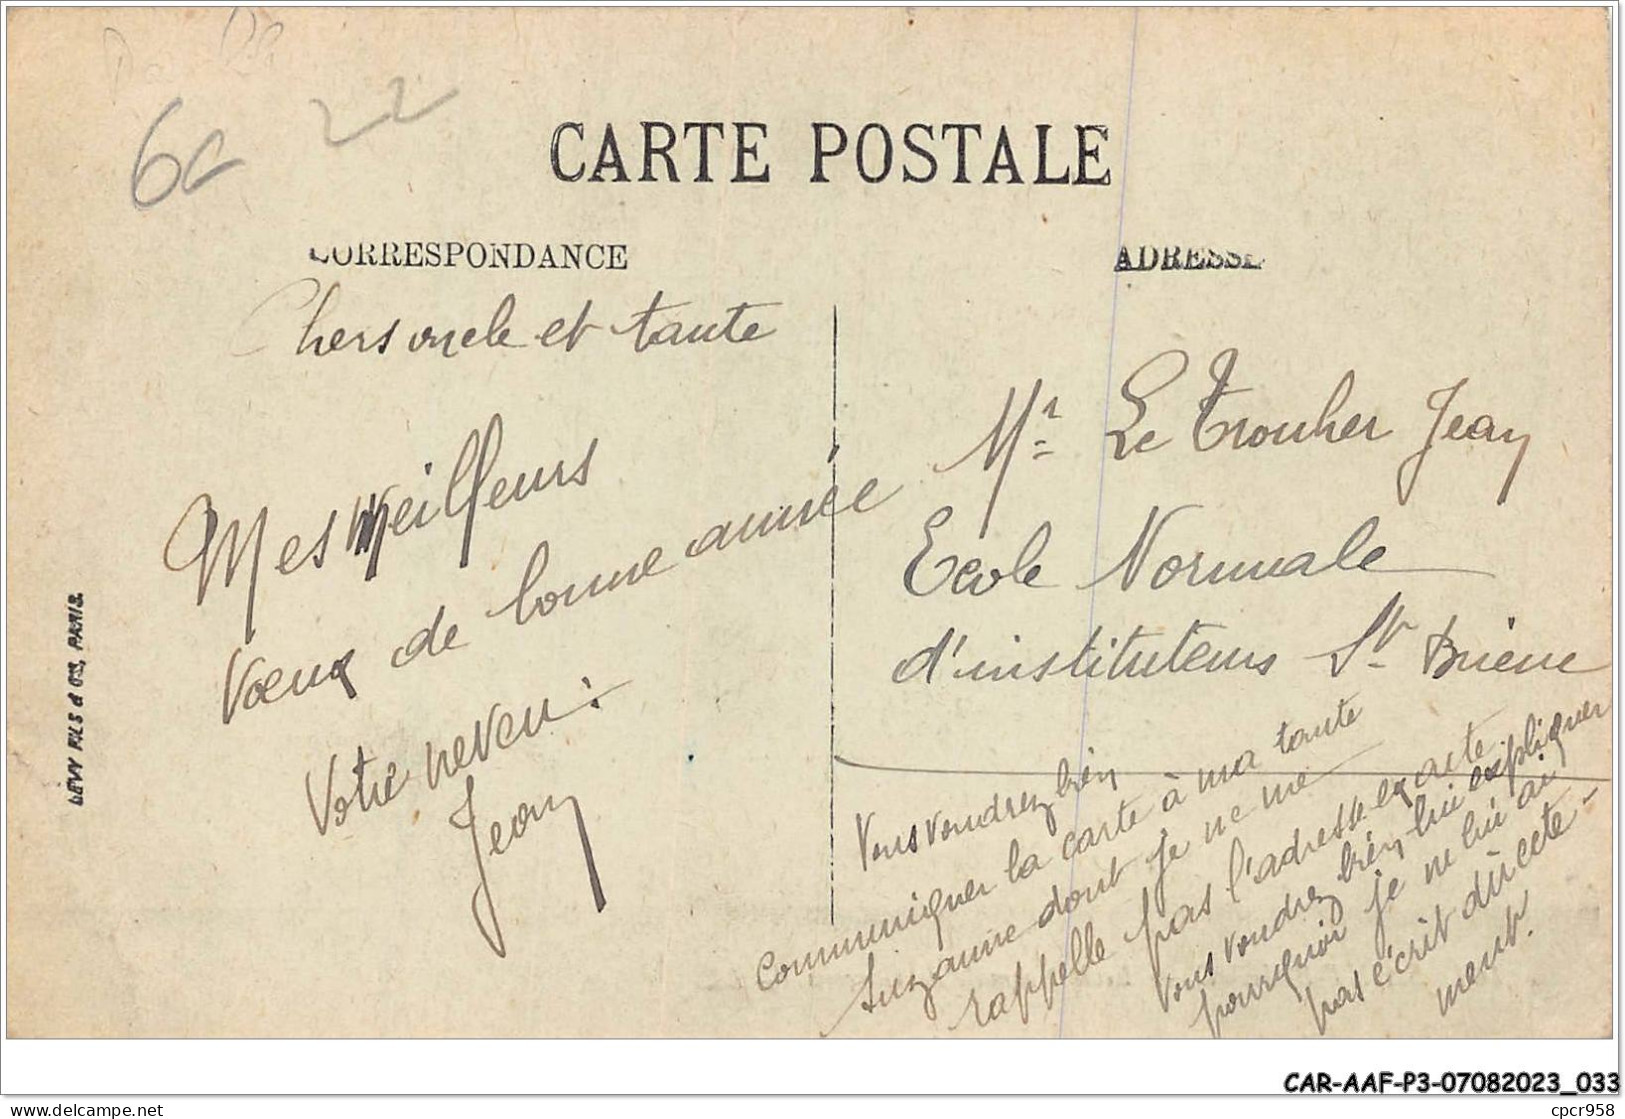 6c 22
CARTE POSTALE
CORRESPONDANCE
ADRESSE
Chers oncle et tante
Mes meilleurs
Vœux de bonne année
Votre neveu :
Jean
Mr Le Trouher Jean
Ecole Normale
d'instituteurs St Brieuc
Vous voudrez bien
communiquer la carte à ma tante
Suzanne dont je ne me
rappelle pas l'adresse exacte
Vous voudrez bien lui expliquer
pourquoi je ne lui ai
pas écrit directe-
ment.
LÉVY FILS & Cie, PARIS.
CAR-AAF-P3-07082023_033
delcampe.net
cpcr958